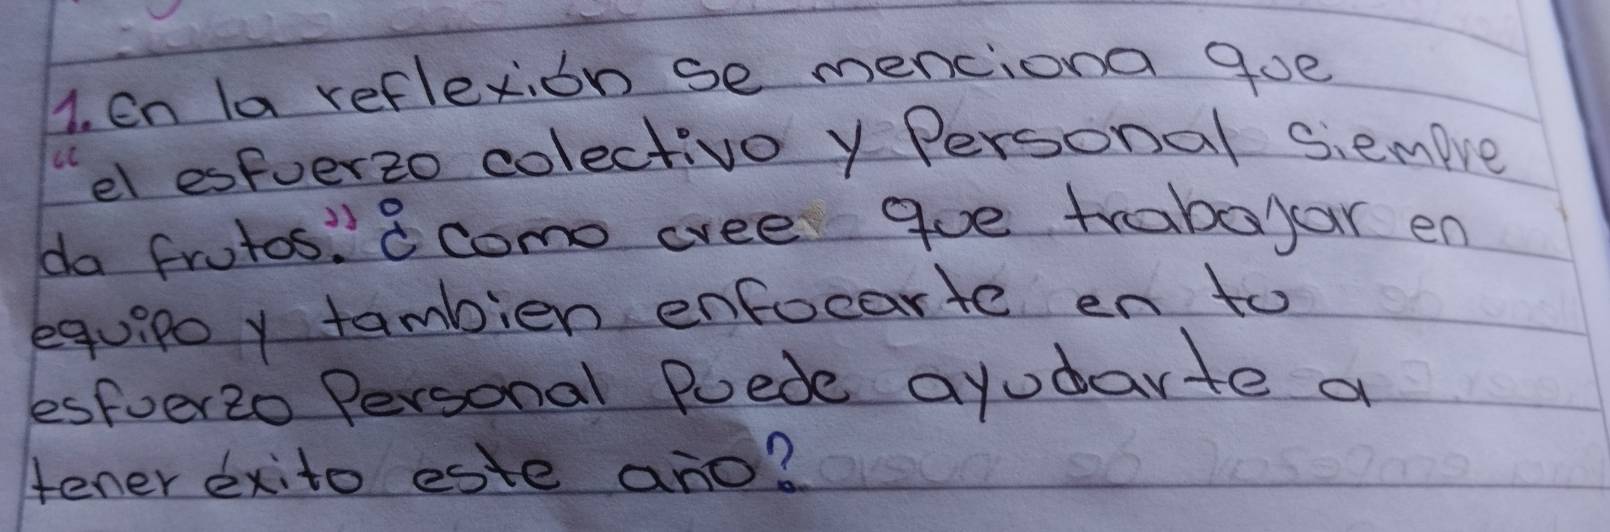 1. En la reflexión se menciona que
"el esfuerzo colectivo y Personal siempre
da frutos." ¿como cree que trabajar en
equipo y tambien enfocarte en tu
esfuerzo Personal Puede ayudarte a
tener éxito este año?